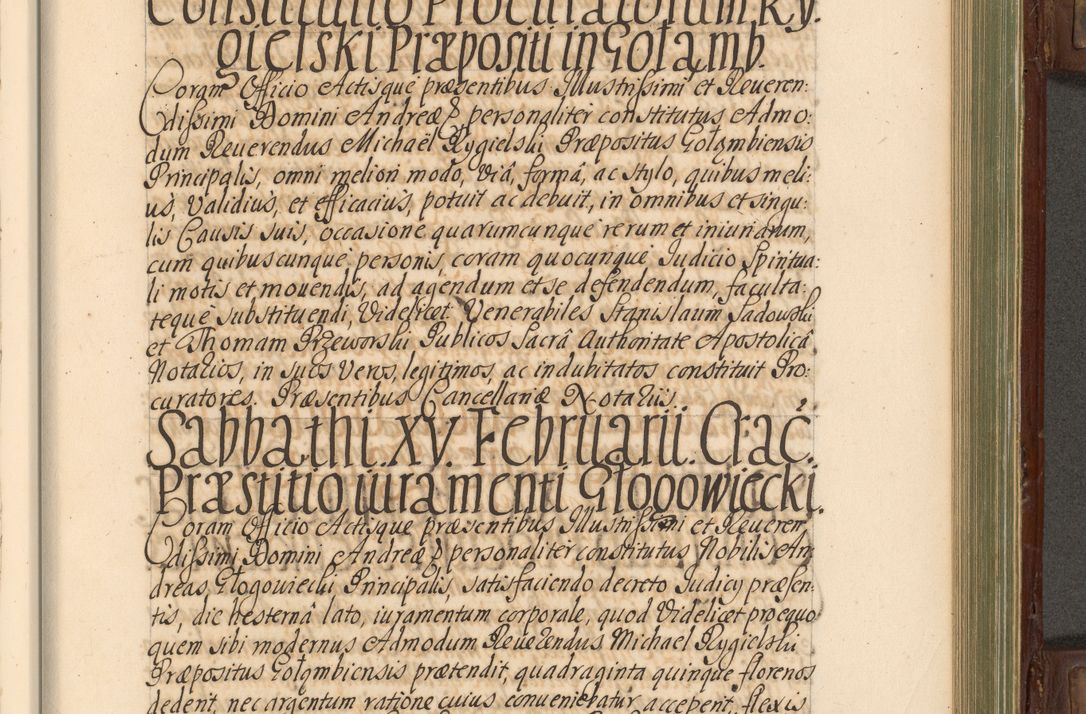 Constitutio Procuratorum Ry:
gielski Præpositi in Gołąmb.
Coram Officio Actisque præsentibus Illustrissimi et Reueren:
dissimi Domini Andreæ personaliter constitutus Admo:
dum Reuerendus Michaël Rygielski Præpositus Gołąmbiensis
Principalis, omni meliori modo, viâ, formâ, ac stylo, quibus meli:
us, validius, et efficacius, potuit ac debuit, in omnibus et singu:
lis Causis suis, occasione quarumcunque rerum et iniuriarum,
cum quibuscunque personis, coram quocunque Judicio Spiritua:
li motis et mouendis, ad agendum et se defendendum, faculta:
teque substituendi, Videlicet Venerabiles Stanislaum Sadowski
et Thomam Przeworski Publicos Sacrâ Authoritate Apostolicâ
Notarios, in suos veros, legitimos, ac indubitatos constituit Pro:
curatores. Præsentibus Cancellariæ Notariis.
Sabbathi. XV. Februarii. Crac.
Præstitio iuramenti Głogowiecki.
Coram Officio Actisque præsentibus Illustrissimi et Reueren:
dissimi Domini Andreæ personaliter constitutus Nobilis An:
dreas Głogowiecki Principalis, satisfaciendo decreto Judicij præsen:
tis, die hesternâ lato, iuramentum corporale, quod Videlicet pro equo
quem sibi modernus Admodum Reuerendus Michael Rygielski
Præpositus Gołąmbiensis prætendit, quadraginta quinque florenos
dedent, nec argentum ratione cuius conueniebatur acceperit, flexis